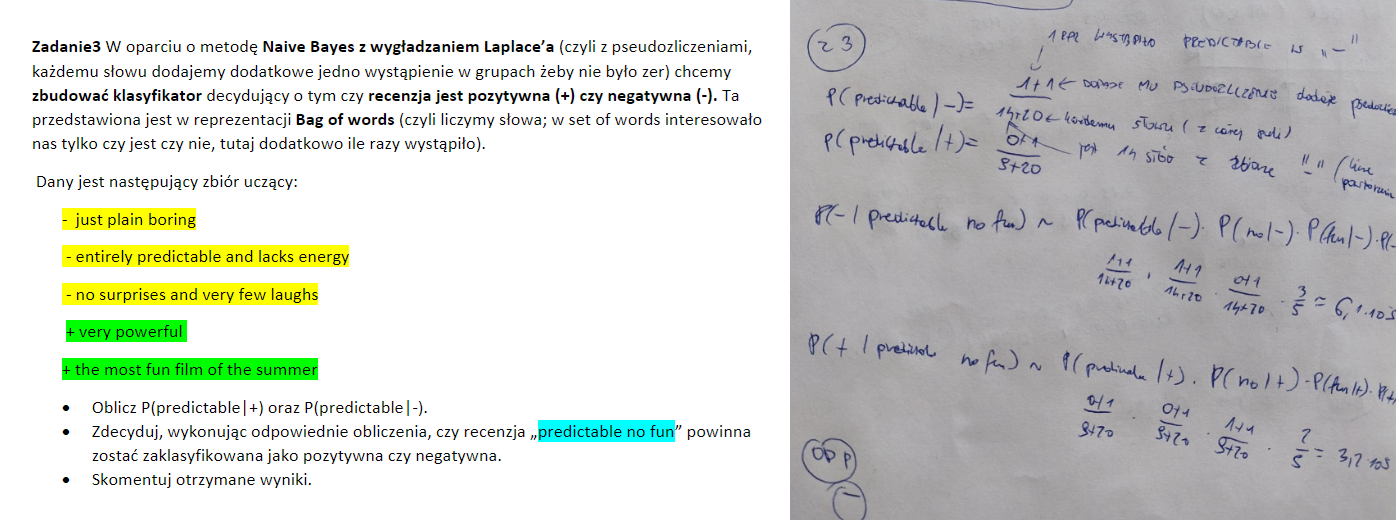 Zadanie3 W oparciu o metodę Naive Bayes z wygładzaniem Laplace’a (czyli z pseudozliczeniami,
każdemu słowu dodajemy dodatkowe jedno wystąpienie w grupach żeby nie było zer) chcemy
zbudować klasyfikator decydujący o tym czy recenzja jest pozytywna (+) czy negatywna (-). Ta
przedstawiona jest w reprezentacji Bag of words (czyli liczymy słowa; w set of words interesowało
nas tylko czy jest czy nie, tutaj dodatkowo ile razy wystąpiło).
Dany jest następujący zbiór uczący:
- just plain boring
- entirely predictable and lacks energy
- no surprises and very few laughs
+ very powerful
+ the most fun film of the summer
• Oblicz P(predictable|+) oraz P(predictable|-).
• Zdecyduj, wykonując odpowiednie obliczenia, czy recenzja „predictable no fun” powinna
zostać zaklasyfikowana jako pozytywna czy negatywna.
• Skomentuj otrzymane wyniki.
Z 3
1 PREDICTABLE W "-"
P(predictable|-)= 1+1 ← dodaje
14+20 ← każdemu słowu (z całej puli)
P(predictable|+)= 0+1
9+20
jest 14 słów z "-"
P(-|predictable no fun) ~ P(predictable|-) · P(no|-) · P(fun|-) · P(-
1+1 · 1+1 · 0+1 · 3 = 6,1·10
14+20 14+20 14+20 5
P(+|predictable no fun) ~ P(predictable|+) · P(no|+) · P(fun|+) · P(+
0+1 · 0+1 · 1+1 · 2 = 3,2·10
9+20 9+20 9+20 5
ODP
-